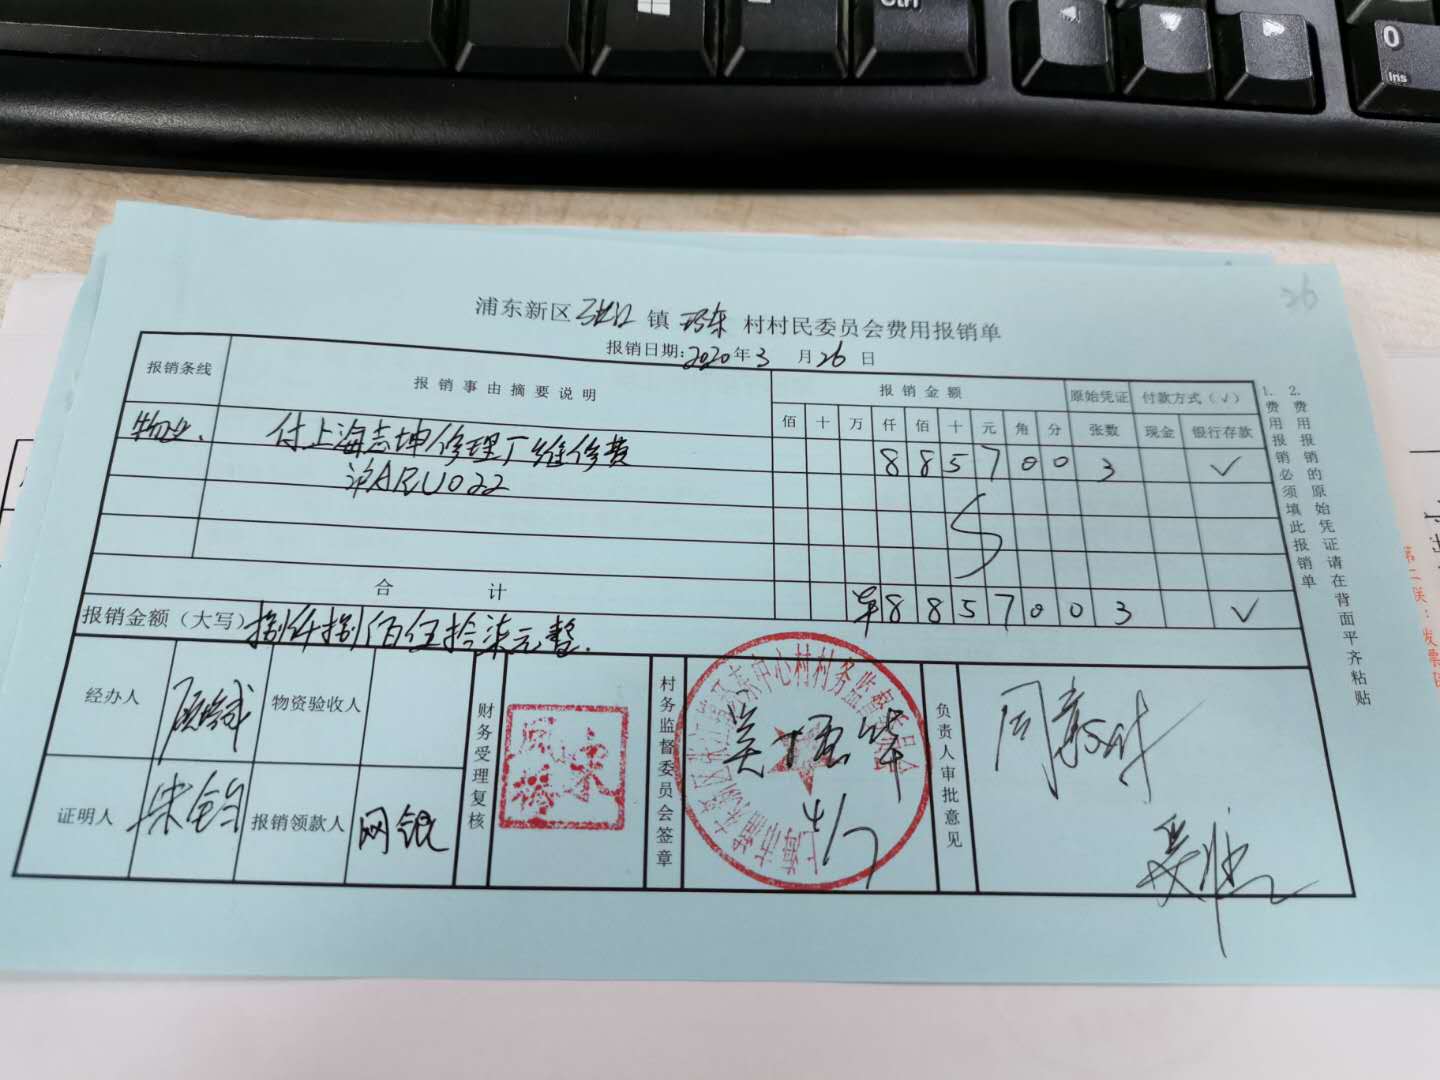 Ctrl
0
Ins
26
浦东新区 张江 镇 环东 村村民委员会费用报销单
报销日期:2020年3月26日
报销条线 报销事由摘要说明 报销金额 原始凭证 付款方式(√)
佰 十 万 仟 佰 十 元 角 分 张数 现金 银行存款
物业、 付上海志坤修理厂维修费 8 8 5 7 0 0 3 √
沪ARU022
合 计 ¥ 8 8 5 7 0 0 3 √
报销金额(大写) 捌仟捌佰伍拾柒元整.
经办人 物资验收人
证明人 宋 报销领款人 网银
财务受理复核
村务监督委员会签章
4/7
负责人审批意见
1. 费用报销必须填此报销单
2. 费用报销的原始凭证请在背面平齐粘贴
第二联:发票